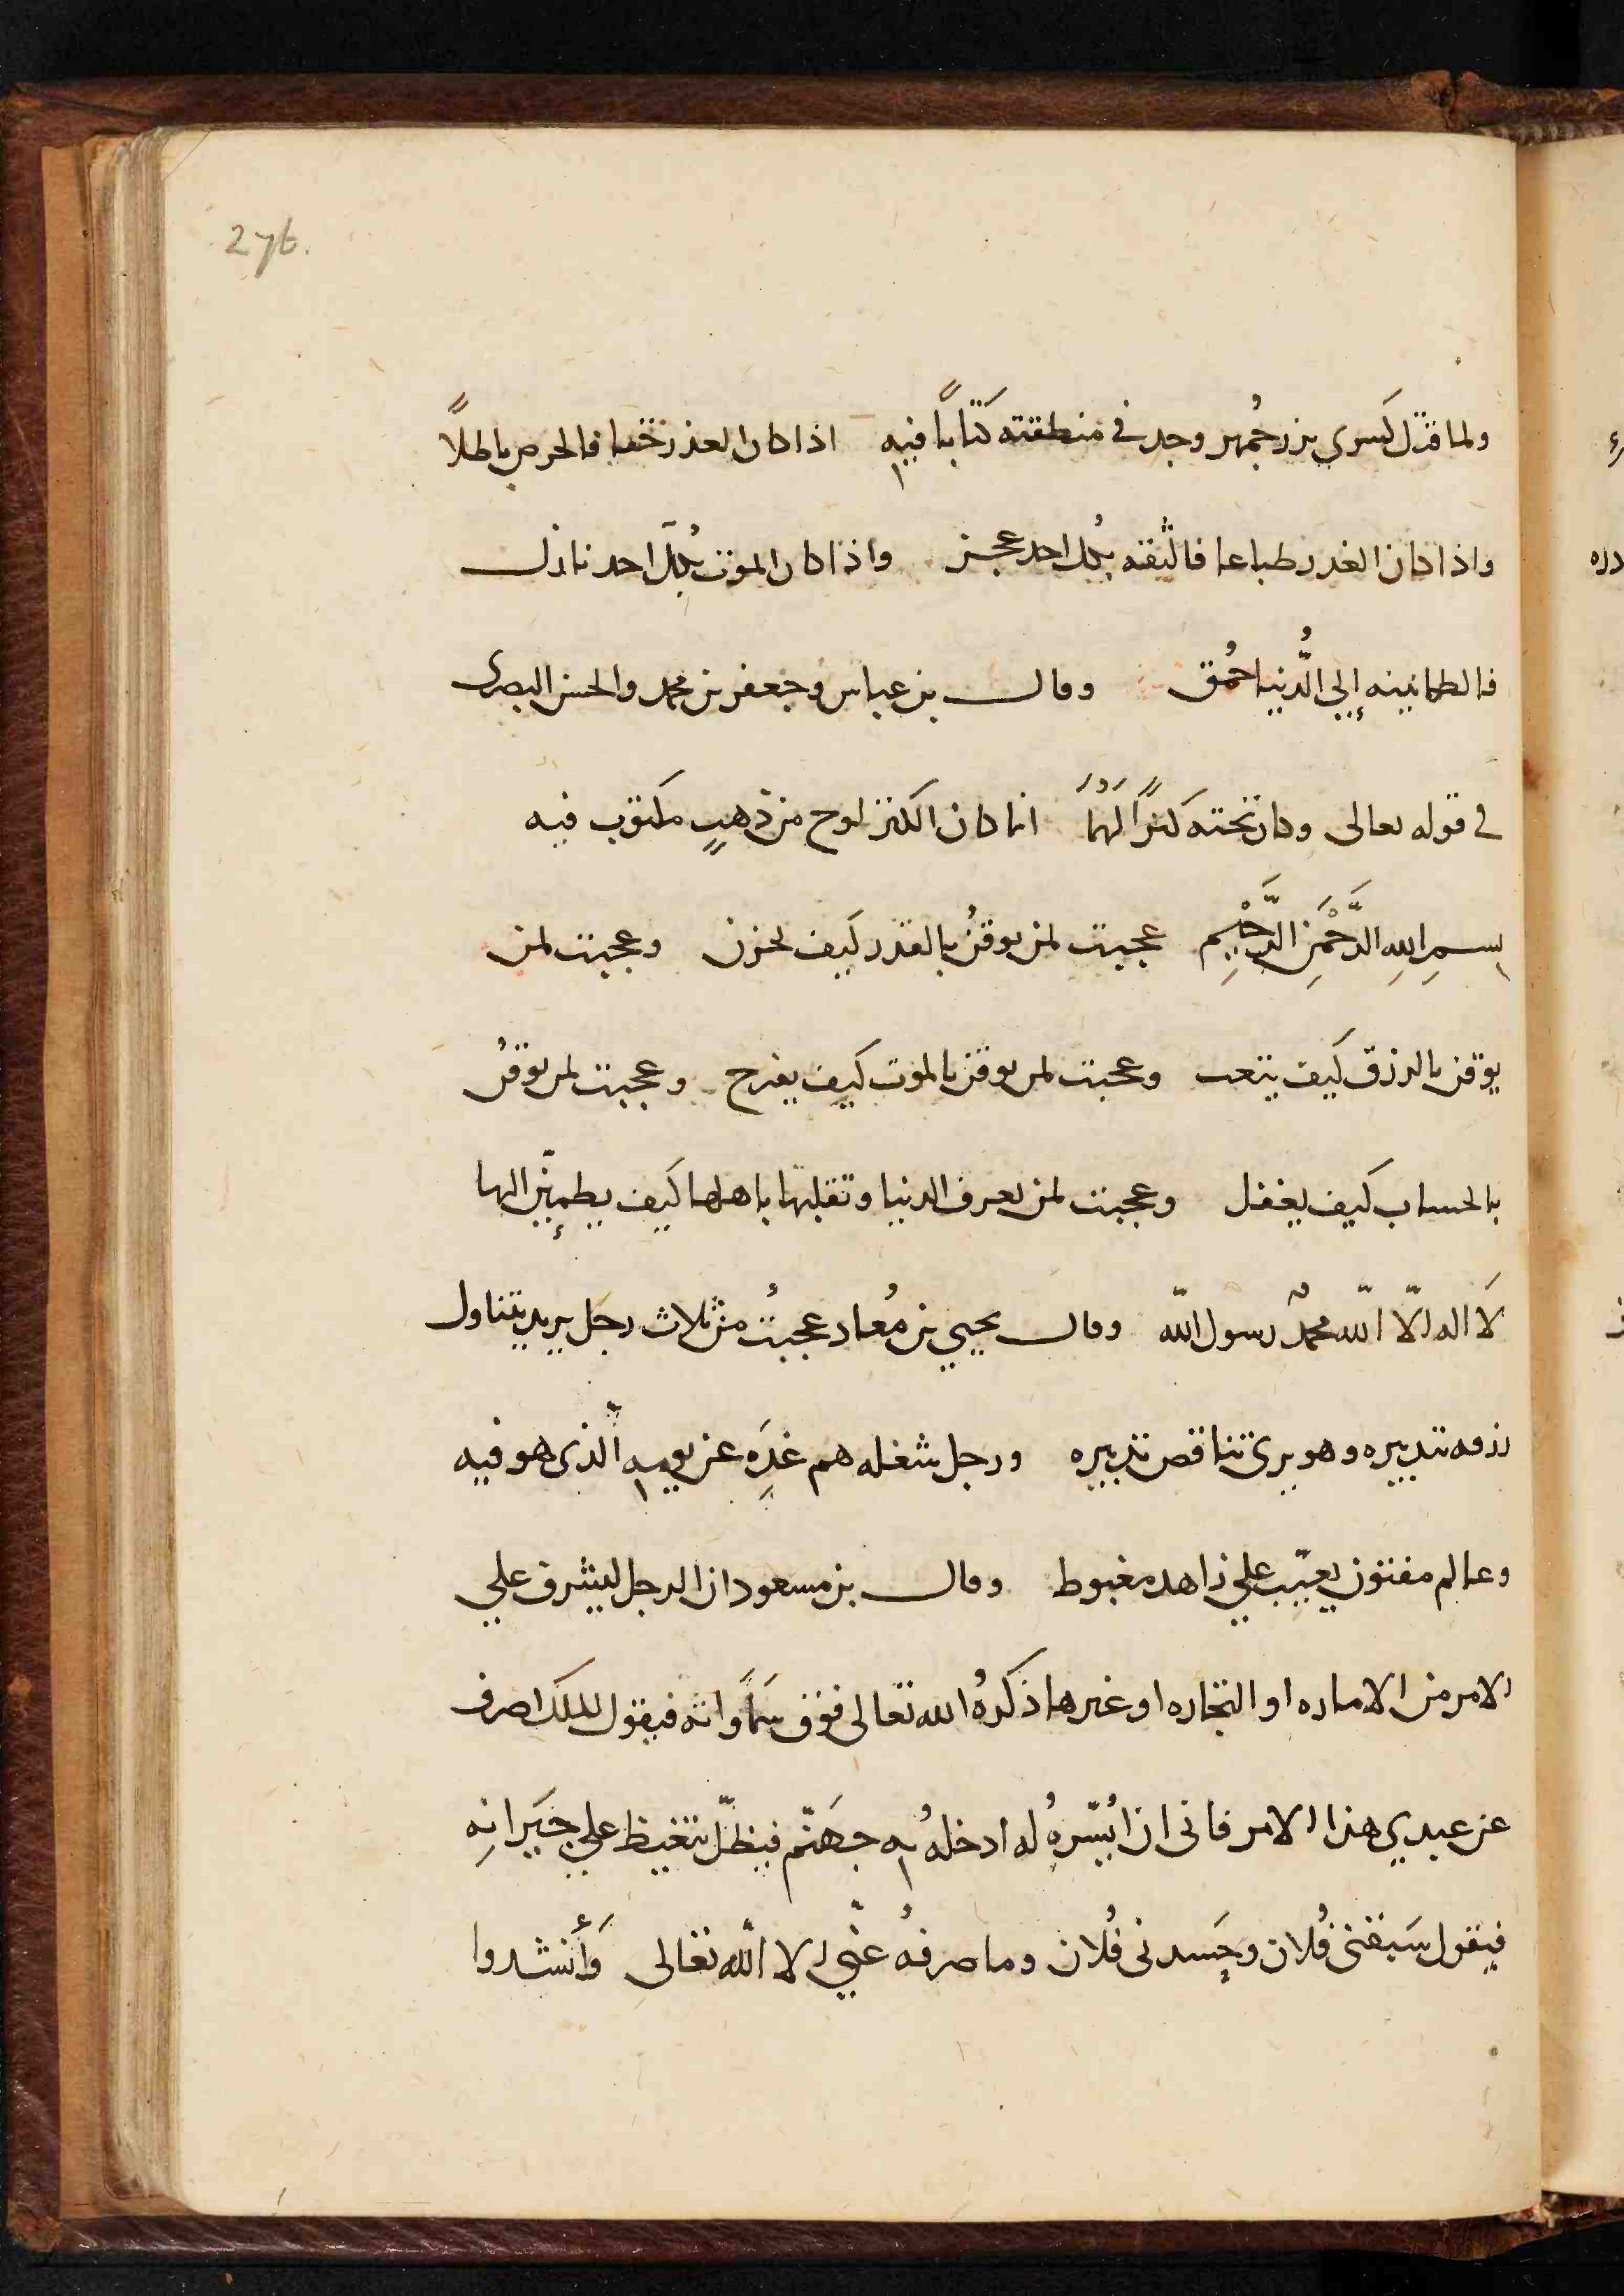 276.
ولما قتل كسرى بزرجُمهر وجد في منطقته كَتَابًا فيه اذا كان العذر حقا فالحرص باطلًا
واذا كان الغدر طباعا فالثقه بكُل احد عجز واذا كان الموت بكُل احد نازل
فالطمانينه إلي الدُّنيا احمُق وقال بن عباس وجعفر بن محمد والحسن البصرى
في قوله تعالى وكان تحته كَنزًا لَهُمَا انما كان الكنز لوح من ذهبٍ مكتوب فيه
بسمِ اللهِ الرَّحْمَنِ الرَّحْيِم عجبت لمن يوقنُ بالقدر كيف يحزن وعجبت لمن
يوقن بالرزق كيف يتعب وعجبت لمن يوقن بالموت كيف يفرح وعجبت لمن يوقنُ
بالحساب كيف يغفل وعجبت لمن يعرف الدنيا وتقلبها باهلها كيف يطمئِنّ اليها
لَا اله الّا اللّه محمدٌ رسول اللّه وقال يحيي بن مُعاد عجبتُ من ثلاث رجل يريد يتناول
رزقه بتدبيره وهو يرى تناقص تدبيره ورجل شغله هم غدِه عن يومِه الّذى هو فيه
وعالم مفتون يعيّب علي زاهد مغبوط وقال بن مسعود ان الرجل ليشرف علي
الامر من الاماره او التجاره او غيرها ذكرهُ الله تعالى فوق سَمَاواته فيقول للملك اصرف
عن عبدي هذا الامر فانى ان أُيسّرهُ له ادخلهُ بِه جهَنّم فيظلّ يتغيظ علي جيَرانِه
فيقول سَبقنى فُلان وحَسدنى فُلان وما صرفهُ عنّي الا اللّه تعالى وَأنشدوا